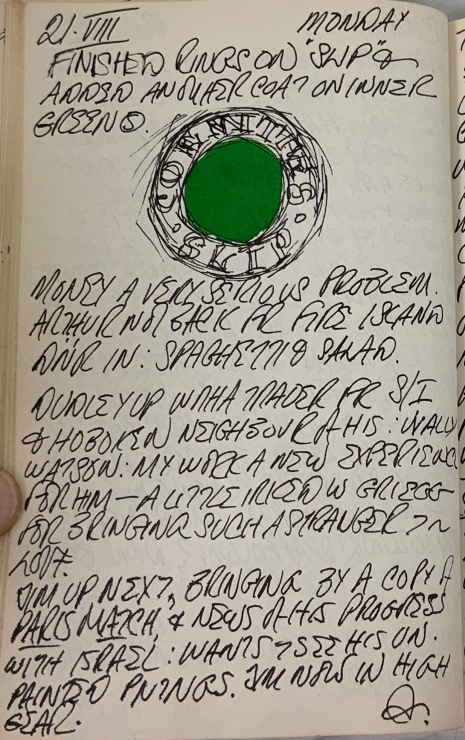 21·VIII MONDAY
FINISHED RINGS ON "SLIP" &
ADDED ANOTHER COAT ON INNER
GREEN O.
COENTIES · SKIP ·
MONEY A VERY SERIOUS PROBLEM.
ARTHUR NOT BACK FR FIRE ISLAND
DNR IN: SPAGHETTI & SALAD.
DUDLEY UP WITH A TRADER FR S/I
& HOBOKEN NEIGHBOUR OF HIS: WALLY
WATSON: MY WORK A NEW EXPERIENCE
FOR HIM — A LITTLE IRKED W GRIEGG
FOR BRINGING SUCH A STRANGER TO
LOFT.
UP NEXT, BRINGING BY A COPY OF
PARIS MATCH, & NEWS OF HIS PROGRESS
WITH ISRAEL: WANTS TO SEE HIS UN.
PAINTED PNTNGS. I'M NOW IN HIGH
GEAR.